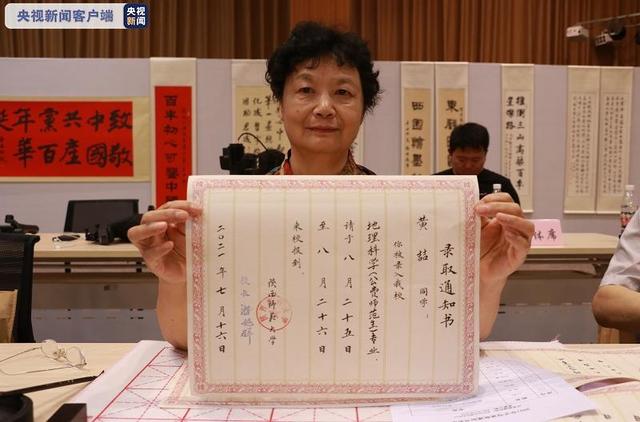 央视新闻客户端
央视新闻
致敬中國共產黨百年華
百年初心可鑒中
录取通知书
黄喆 同学:
你被录入我校
地理科学(公费师范生)专业,
请于八月二十五日
至八月二十六日
来校报到
陕西师范大学
校长 游旭群
二〇二一年七月十六日
体席